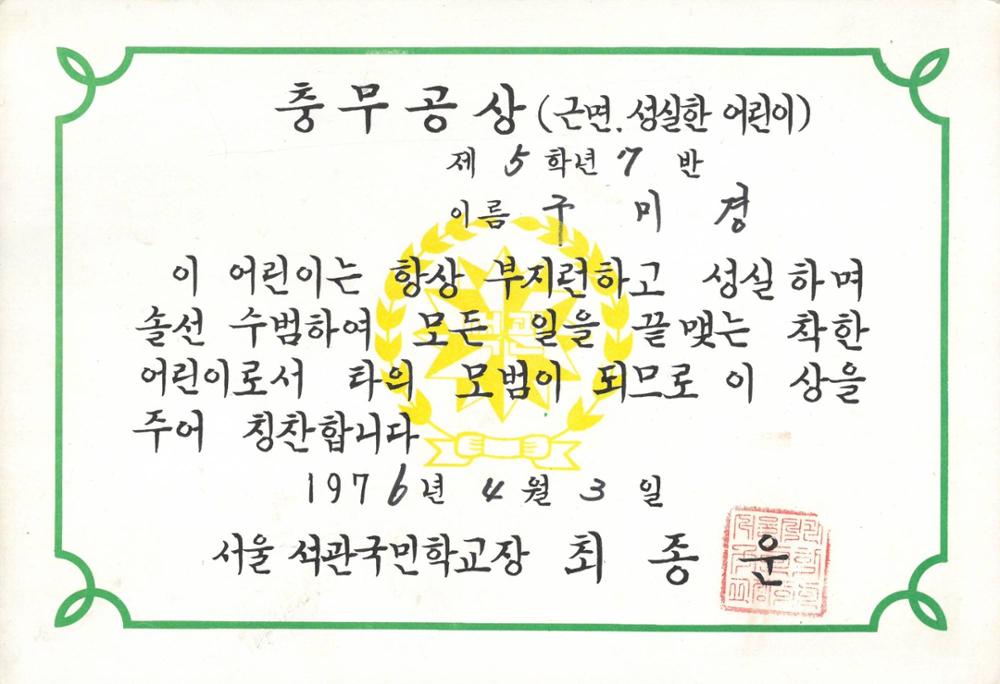 충무공상 (근면.성실한 어린이)
제 5 학년 7 반
이름 구 미 경
이 어린이는 항상 부지런하고 성실하며
솔선 수범하여 모든 일을 끝맺는 착한
어린이로서 타의 모범이 되므로 이 상을
주어 칭찬합니다
1976년 4월 3일
서울 석관국민학교장 최 종 운